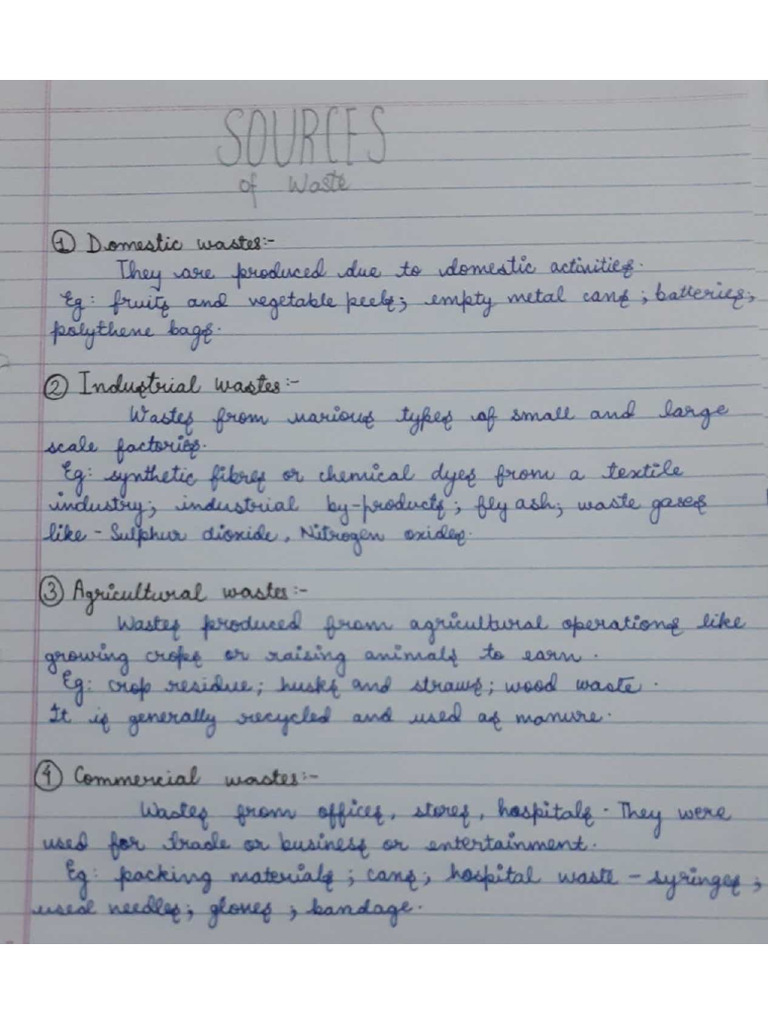 SOURCES
of Waste
① Domestic wastes:-
They are produced due to domestic activities.
Eg: fruits and vegetable peels; empty metal cans; batteries;
polythene bags.
② Industrial wastes:-
Wastes from various types of small and large
scale factories.
Eg: synthetic fibres or chemical dyes from a textile
industry; industrial by-products; fly ash; waste gases
like - Sulphur dioxide, Nitrogen oxides.
③ Agricultural wastes:-
Wastes produced from agricultural operations like
growing crops or raising animals to earn.
Eg: crop residue; husks and straws; wood waste.
It is generally recycled and used as manure.
④ Commercial wastes:-
Wastes from offices, stores, hospitals. They were
used for trade or business or entertainment.
Eg: packing materials; cans; hospital waste - syringes;
used needles; gloves; bandage.